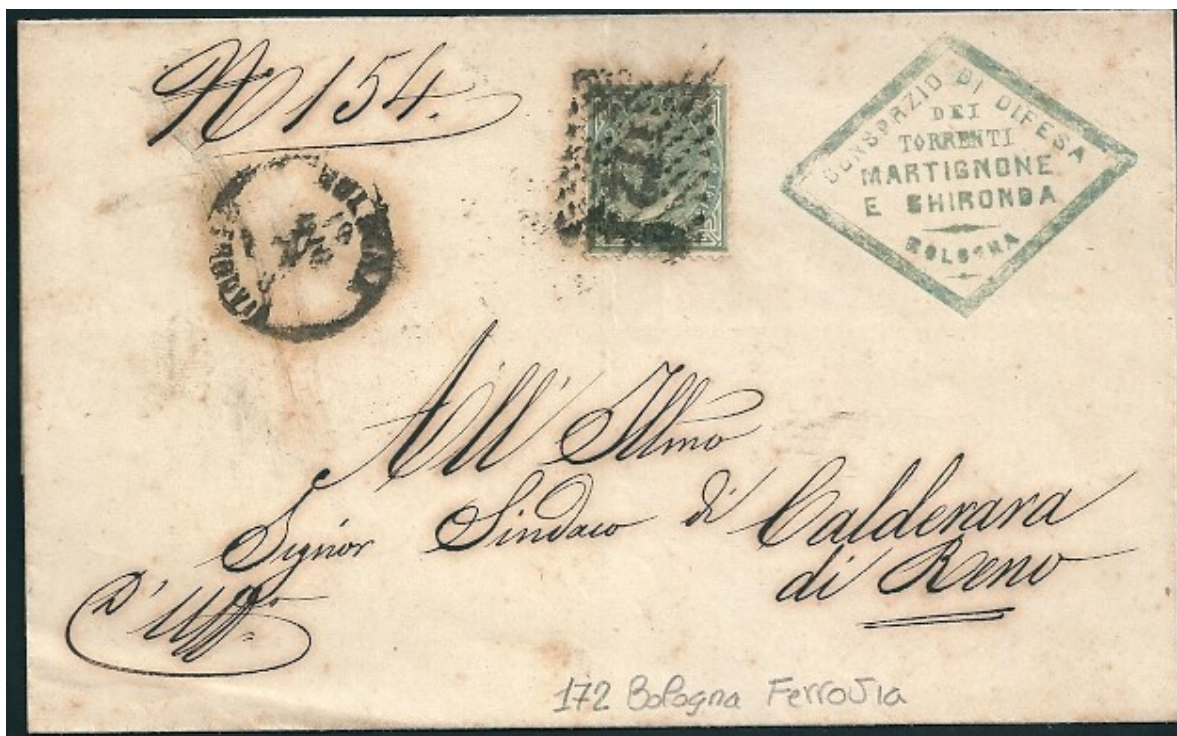 N 154.
CONSORZIO DI DIFESA
DEI
TORRENTI
MARTIGNONE
E GHIRONDA
BOLOGNA
BOLOGNA
All' Illmo
Signor Sindaco di Calderara
di Reno
D'Uff.o
172 Bologna Ferrovia